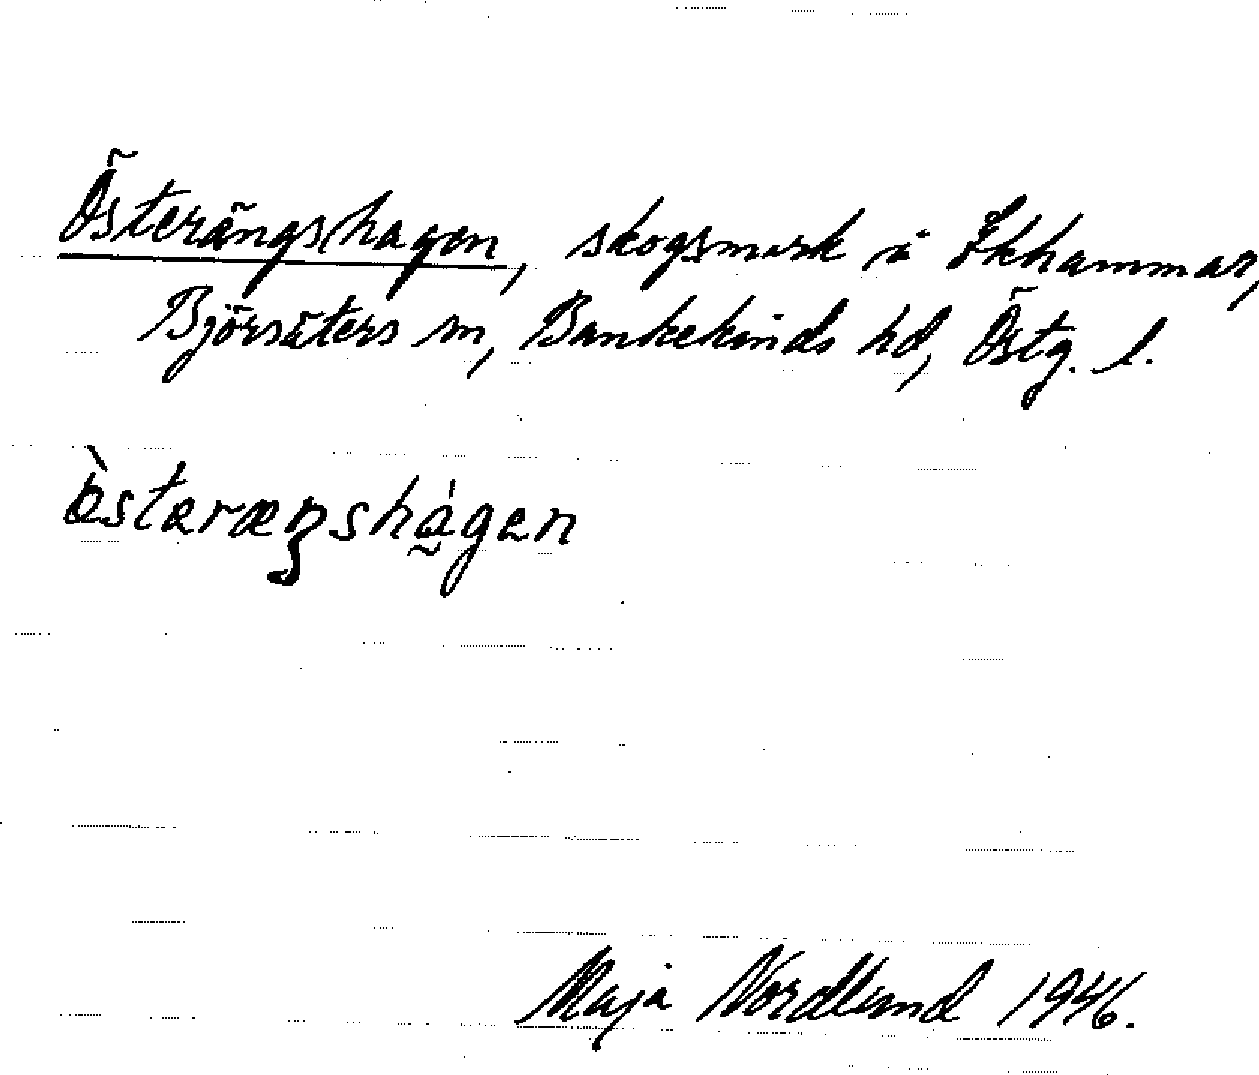 Österängshagen, skogsmark i Ekhammar,
Björsäters sn, Bankekinds hd, Östg. l.
ö̀stəræŋshá̰gən
Maja Nordlund 1946.